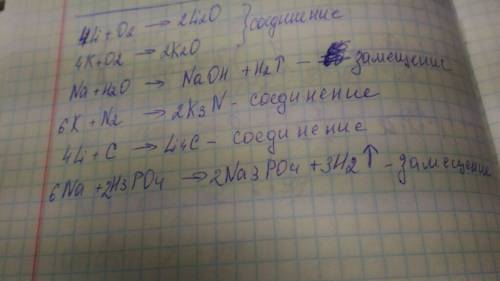 4Li+O2 → 2Li2O } соединение
4K+O2 → 2K2O
Na+H2O → NaOH + H2↑ - замещение
6K + N2 → 2K3N - соединение
4Li + C → Li4C - соединение
6Na + 2H3PO4 → 2Na3PO4 + 3H2↑ - замещение